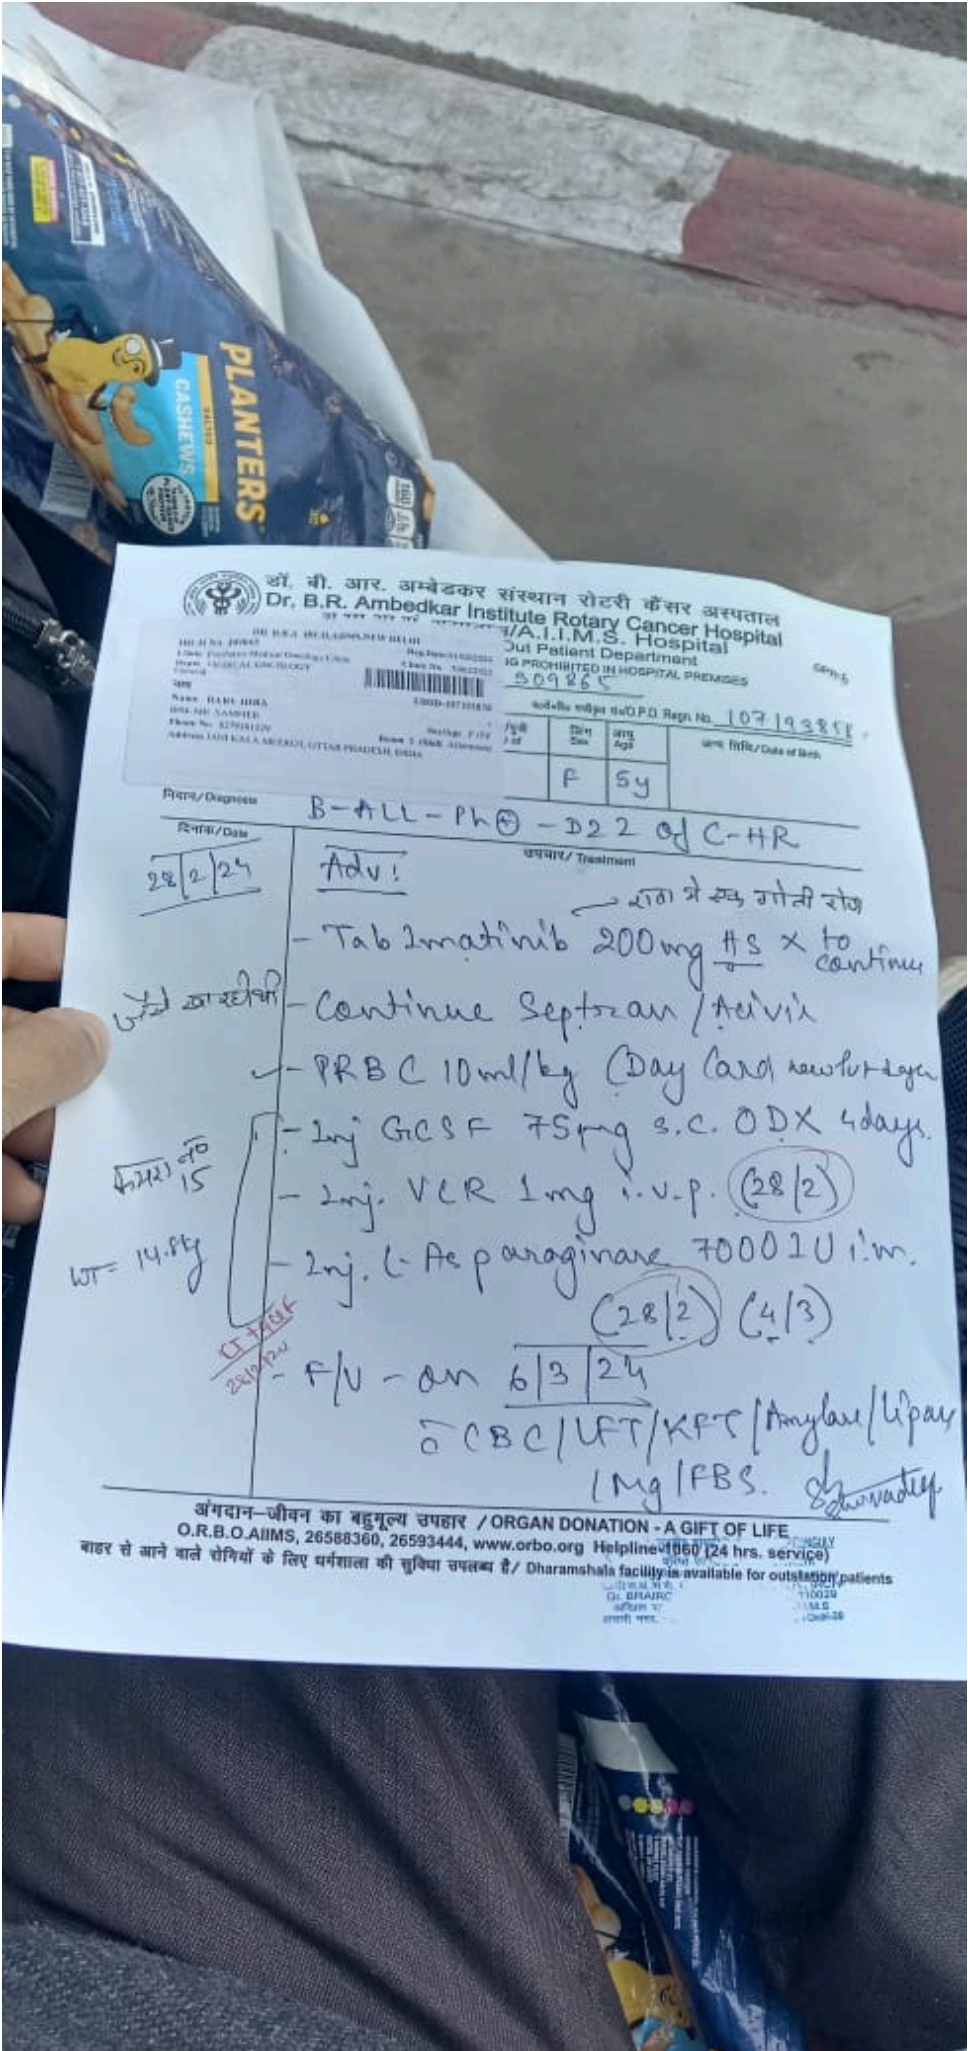 PLANTERS
SALTED
CASHEWS
160
डॉ. बी. आर. अम्बेडकर संस्थान रोटरी कैंसर अस्पताल
Dr. B.R. Ambedkar Institute Rotary Cancer Hospital
/A.I.I.M.S. Hospital
Out Patient Department
IG PROHIBITED IN HOSPITAL PREMISES
GPR-6
DR B.R.A IRCH,AIIMS,NEW DELHI
MEDICAL ONCOLOGY
Name
Phone No.
UTTAR PRADESH, INDIA
509865
O.P.D. Regn. No.
लिंग Sex
आयु Age
जन्म तिथि/Date of Birth
F 5y
निदान/Diagnosis B-ALL-Ph⊕ - D22 of C-HR
दिनांक/Date
उपचार/Treatment
28/2/24
Adv:
रात में एक गोली रोज
- Tab Imatinib 200mg HS x to continue
- Continue Septran/Acivir
- PRBC 10ml/kg (Day Card
- Inj GCSF 75μg s.c. OD X 4days.
कमरा नं० 15
- Inj. VCR 1mg i.v.p. (28/2)
WT = 14.8kg
- Inj. L-Asparaginase 7000IU i.m.
(28/2) (4/3)
- F/U - on 6/3/24
c̄ CBC/LFT/KFT/Amylase/Lipase
/Mg/FBS.
अंगदान-जीवन का बहुमूल्य उपहार / ORGAN DONATION - A GIFT OF LIFE
O.R.B.O.AIIMS, 26588360, 26593444, www.orbo.org Helpline-1060 (24 hrs. service)
बाहर से आने वाले रोगियों के लिए धर्मशाला की सुविधा उपलब्ध है/ Dharamshala facility is available for outstation patients